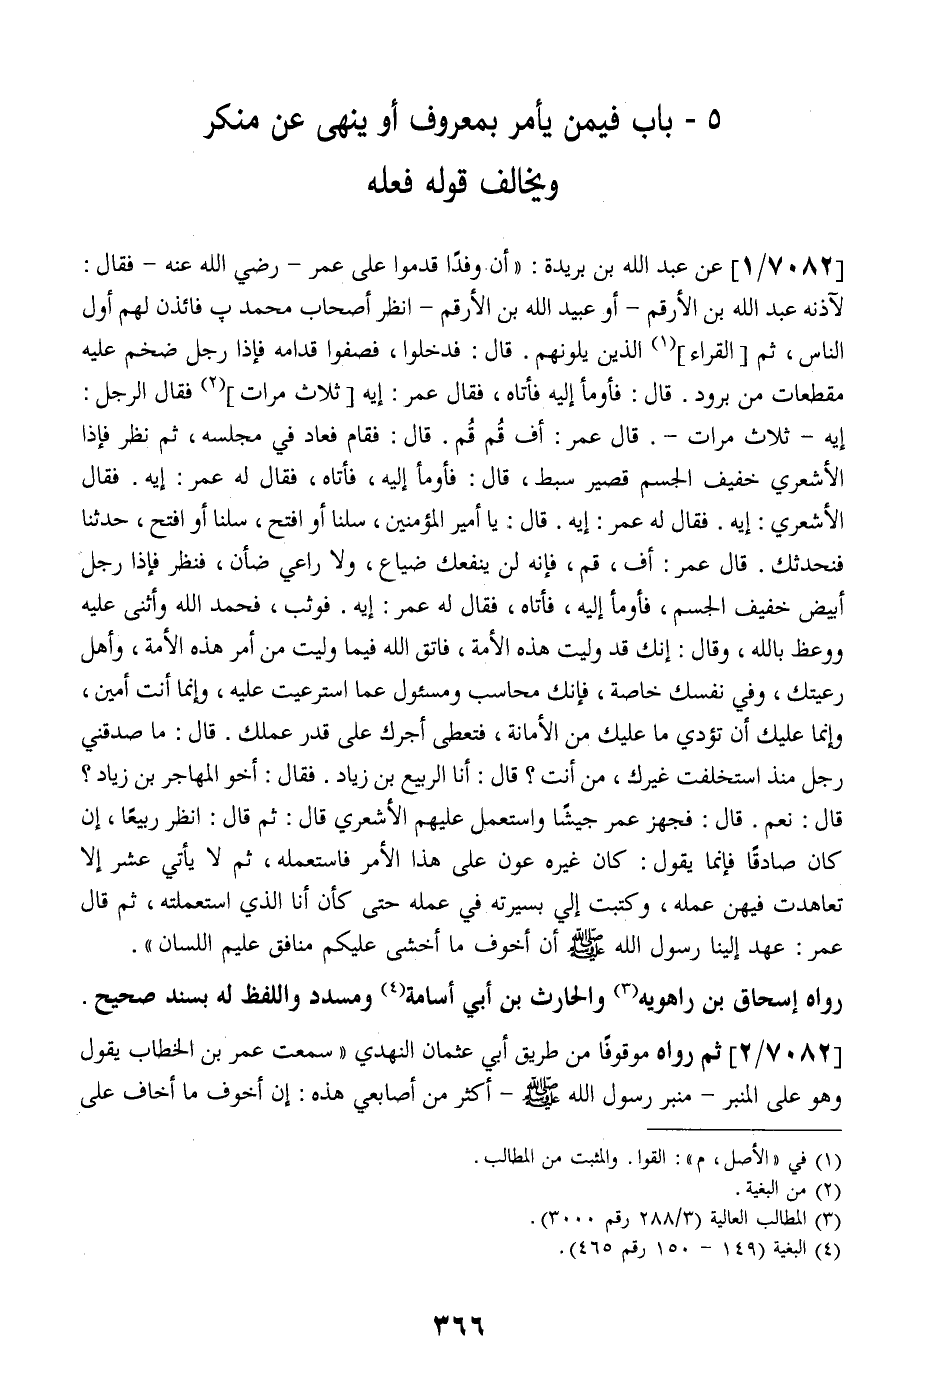 ٥ - باب فيمن يأمر بمعروف أو ينهى عن منكر
ويخالف قوله فعله
[١/٧٠٨٢] عن عبد الله بن بريدة : « أن وفدًا قدموا على عمر – رضي الله عنه – فقال :
لآذنه عبد الله بن الأرقم – أو عبيد الله بن الأرقم – انظر أصحاب محمد پ فائذن لهم أول
الناس ، ثم [ القراء ](١) الذين يلونهم . قال : فدخلوا ، فصفوا قدامه فإذا رجل ضخم عليه
مقطعات من برود . قال : فأومأ إليه فأتاه ، فقال عمر : إيه [ ثلاث مرات ](٢) فقال الرجل :
إيه – ثلاث مرات – . قال عمر : أف قُم قُم . قال : فقام فعاد في مجلسه ، ثم نظر فإذا
الأشعري خفيف الجسم قصير سبط ، قال : فأومأ إليه ، فأتاه ، فقال له عمر : إيه . فقال
الأشعري : إيه . فقال له عمر : إيه . قال : يا أمير المؤمنين ، سلنا أو افتح ، سلنا أو افتح ، حدثنا
فنحدثك . قال عمر : أف ، قم ، فإنه لن ينفعك ضياع ، ولا راعي ضأن ، فنظر فإذا رجل
أبيض خفيف الجسم ، فأومأ إليه ، فأتاه ، فقال له عمر : إيه . فوثب ، فحمد الله وأثنى عليه
ووعظ بالله ، وقال : إنك قد وليت هذه الأمة ، فاتق الله فيما وليت من أمر هذه الأمة ، وأهل
رعيتك ، وفي نفسك خاصة ، فإنك محاسب ومسئول عما استرعيت عليه ، وإنما أنت أمين ،
وإنما عليك أن تؤدي ما عليك من الأمانة ، فتعطى أجرك على قدر عملك . قال : ما صدقني
رجل منذ استخلفت غيرك ، من أنت ؟ قال : أنا الربيع بن زياد . فقال : أخو المهاجر بن زياد ؟
قال : نعم . قال : فجهز عمر جيشًا واستعمل عليهم الأشعري قال : ثم قال : انظر ربيعًا ، إن
كان صادقًا فإنما يقول : كان غيره عون على هذا الأمر فاستعمله ، ثم لا يأتي عشر إلا
تعاهدت فيهن عمله ، وكتبت إلي بسيرته في عمله حتى كأن أنا الذي استعملته ، ثم قال
عمر : عهد إلينا رسول الله ﷺ أن أخوف ما أخشى عليكم منافق عليم اللسان » .
رواه إسحاق بن راهويه(٣) والحارث بن أبي أسامة(٤) ومسدد واللفظ له بسند صحيح .
[٢/٧٠٨٢] ثم رواه موقوفًا من طريق أبي عثمان النهدي « سمعت عمر بن الخطاب يقول
وهو على المنبر – منبر رسول الله ﷺ – أكثر من أصابعي هذه : إن أخوف ما أخاف على
(١) في «الأصل ، م» : القوا . والمثبت من المطالب .
(٢) من البغية .
(٣) المطالب العالية (٢٨٨/٣ رقم ٣٠٠٠) .
(٤) البغية (١٤٩ – ١٥٠ رقم ٤٦٥) .
٣٦٦